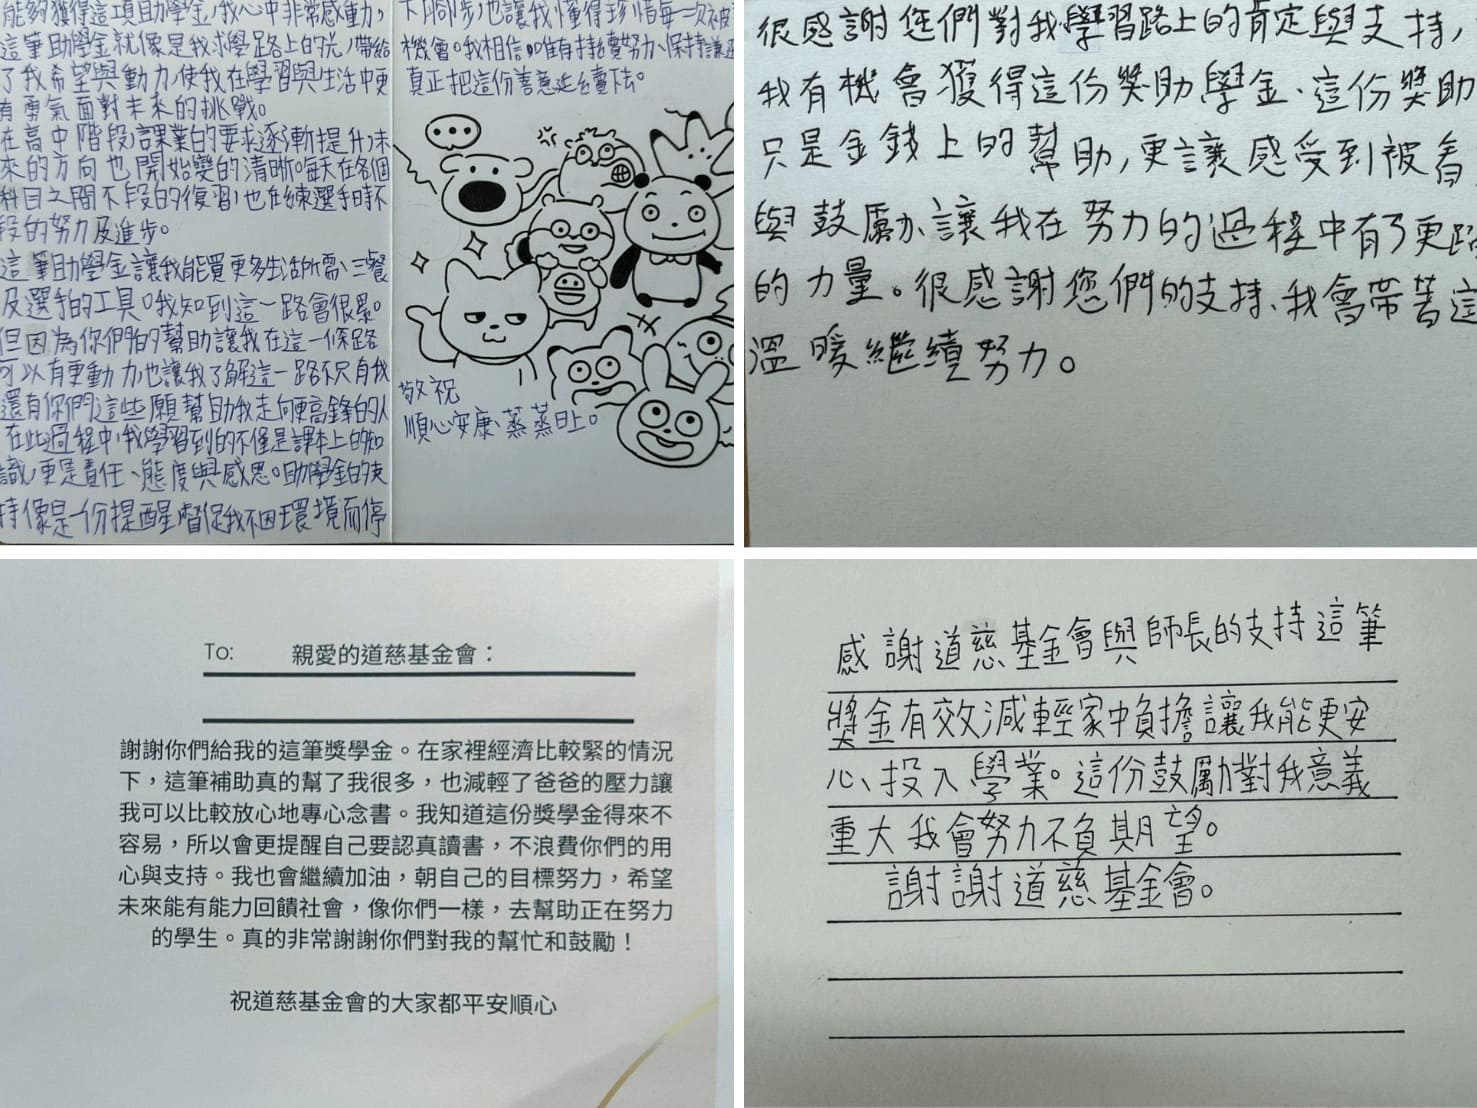 能夠獲得這項助學金,我心中非常感動,
這筆助學金就像是我求學路上的光,帶給
了我希望與動力,使我在學習與生活中更
有勇氣面對未來的挑戰。
在高中階段,課業的要求逐漸提升,未
來的方向也開始變的清晰。每天在各個
科目之間不段的復習,也在練選手時不
段的努力及進步。
這筆助學金讓我能買更多生活所需、三餐
及選手的工具。我知到這一路會很累。
但因為你們的幫助讓我在這一條路
可以有更動力,也讓我了解這一路不只有我
還有你們這些願幫助我走向更高鋒的人
在此過程中,我學習到的不僅是課本上的知
識,更是責任、態度與感恩。助學金的支
持像是一份提醒,督促我不因環境而停
下腳步,也讓我懂得珍惜每一次被
機會。我相信,唯有持續努力、保持謙
真正把這份善意延續下去。
敬祝
順心安康、蒸蒸日上。
很感謝您們對我學習路上的肯定與支持,
我有機會獲得這份獎助學金、這份獎助
只是金錢上的幫助,更讓感受到被看
與鼓勵、讓我在努力的過程中有了更
的力量。很感謝您們的支持、我會帶著這
溫暖繼續努力。
To: 親愛的道慈基金會:
謝謝你們給我的這筆獎學金。在家裡經濟比較緊的情況
下,這筆補助真的幫了我很多,也減輕了爸爸的壓力讓
我可以比較放心地專心念書。我知道這份獎學金得來不
容易,所以會更提醒自己要認真讀書,不浪費你們的用
心與支持。我也會繼續加油,朝自己的目標努力,希望
未來能有能力回饋社會,像你們一樣,去幫助正在努力
的學生。真的非常謝謝你們對我的幫忙和鼓勵!
祝道慈基金會的大家都平安順心
感謝道慈基金會與師長的支持這筆
獎金有效減輕家中負擔讓我能更安
心、投入學業。這份鼓勵對我意義
重大我會努力不負期望。
謝謝道慈基金會。